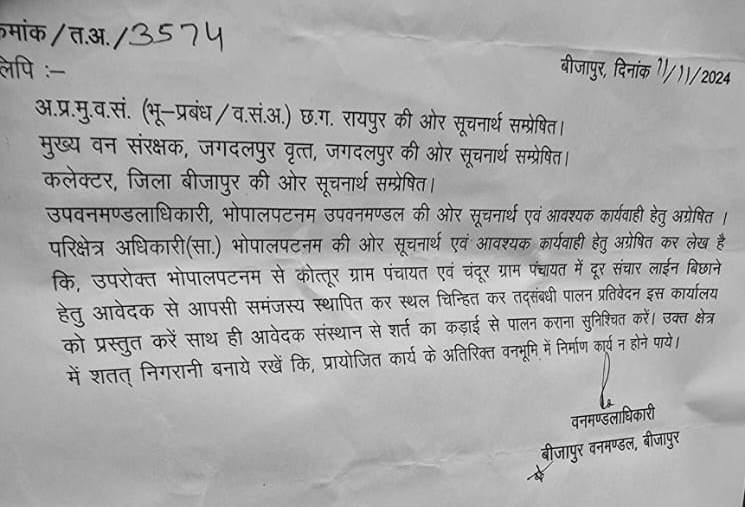 क्रमांक/त.अ./3574
बीजापुर, दिनांक 11/11/2024
लिपि :–
अ.प्र.मु.व.सं. (भू–प्रबंध/व.सं.अ.) छ.ग. रायपुर की ओर सूचनार्थ सम्प्रेषित।
मुख्य वन संरक्षक, जगदलपुर वृत्त, जगदलपुर की ओर सूचनार्थ सम्प्रेषित।
कलेक्टर, जिला बीजापुर की ओर सूचनार्थ सम्प्रेषित।
उपवनमण्डलाधिकारी, भोपालपटनम उपवनमण्डल की ओर सूचनार्थ एवं आवश्यक कार्यवाही हेतु अग्रेषित ।
परिक्षेत्र अधिकारी(सा.) भोपालपटनम की ओर सूचनार्थ एवं आवश्यक कार्यवाही हेतु अग्रेषित कर लेख है
कि, उपरोक्त भोपालपटनम से कोत्तूर ग्राम पंचायत एवं चंदूर ग्राम पंचायत में दूर संचार लाईन बिछाने
हेतु आवेदक से आपसी समंजस्य स्थापित कर स्थल चिन्हित कर तद्संबधी पालन प्रतिवेदन इस कार्यालय
को प्रस्तुत करें साथ ही आवेदक संस्थान से शर्त का कड़ाई से पालन कराना सुनिश्चित करें। उक्त क्षेत्र
में शतत् निगरानी बनाये रखें कि, प्रायोजित कार्य के अतिरिक्त वनभूमि में निर्माण कार्य न होने पाये।
वनमण्डलाधिकारी
बीजापुर वनमण्डल, बीजापुर